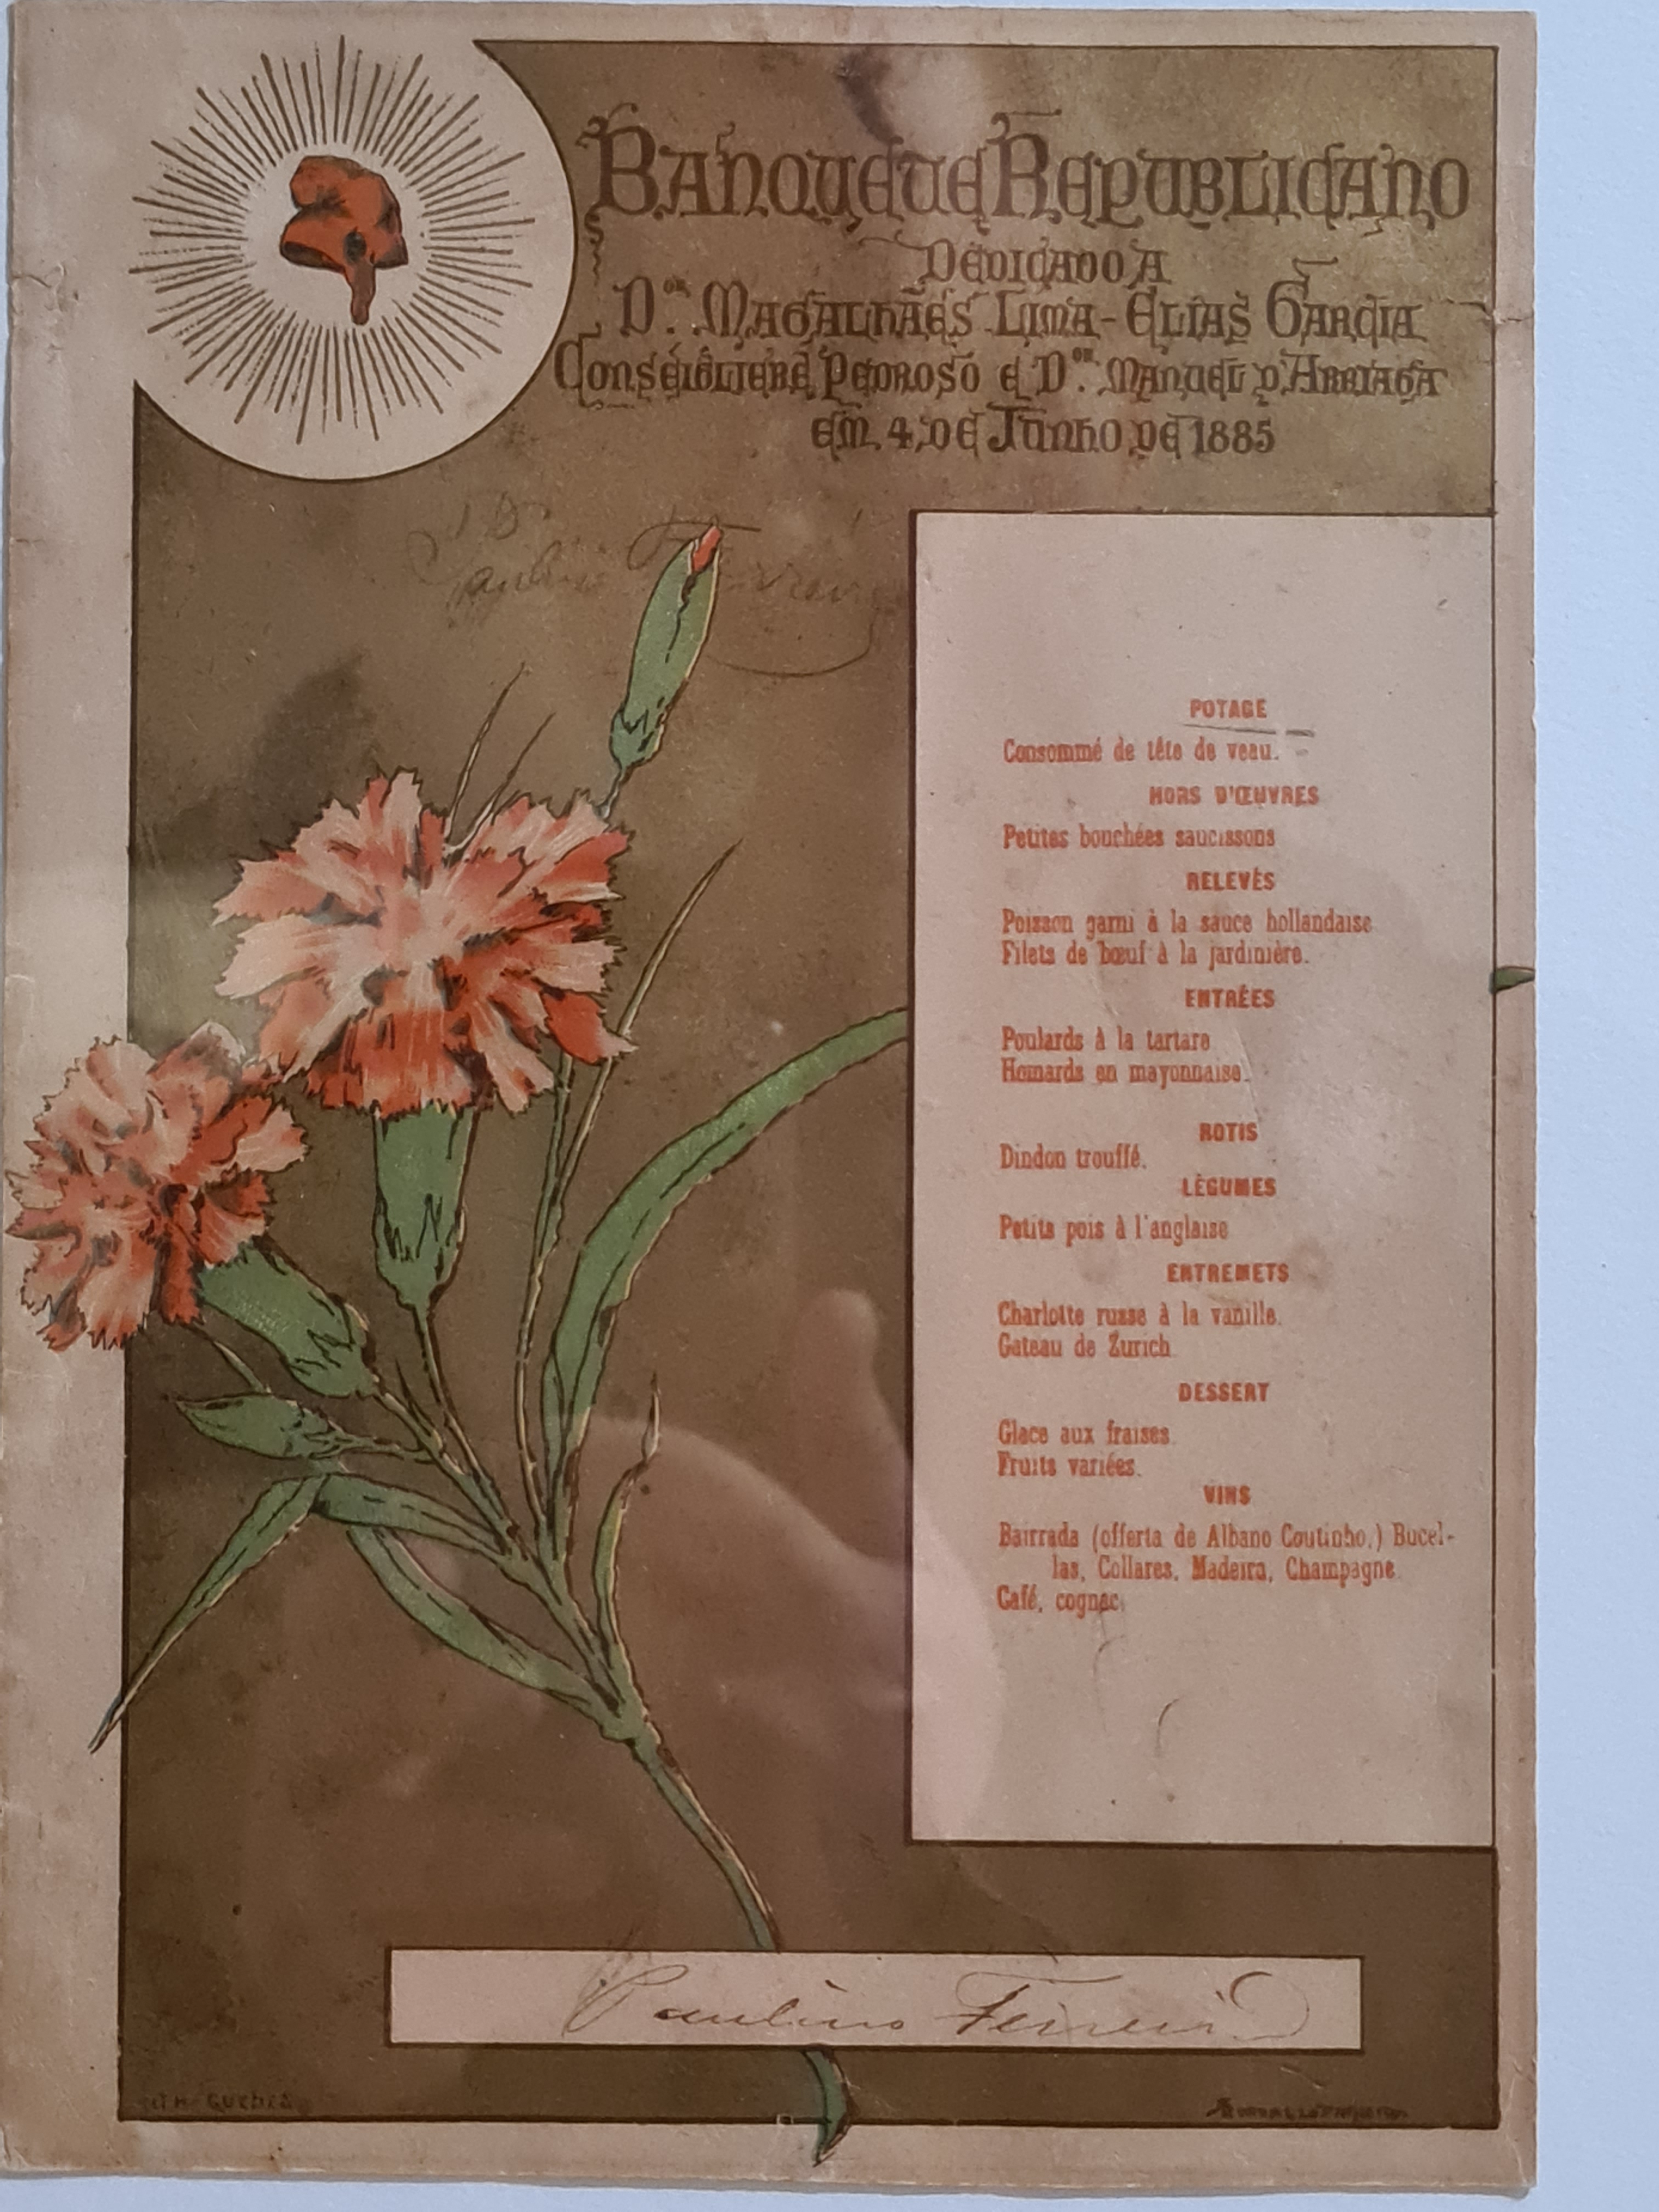 Banquete Republicano
Dedicado a
D.or Magalhães Lima - Elias Garcia
Consiglieré Pedroso e D.or Manuel d'Arriaga
em 4 de Junho de 1885
Paulino Ferreira
POTAGE
Consommé de tête de veau.
HORS D'ŒUVRES
Petites bouchées saucissons
RELEVÈS
Poisson garni à la sauce hollandaise
Filets de bœuf à la jardinière.
ENTRÉES
Poulards à la tartare
Homards en mayonnaise.
ROTIS
Dindon trouffé.
LÈGUMES
Petits pois à l'anglaise
ENTREMETS
Charlotte russe à la vanille.
Gateau de Zurich
DESSERT
Glace aux fraises
Fruits variées.
VINS
Bairrada (offerta de Albano Coutinho,) Bucel-
las, Collares, Madeira, Champagne
Café, cognac.
Paulino Ferreira
LITH GUEDES